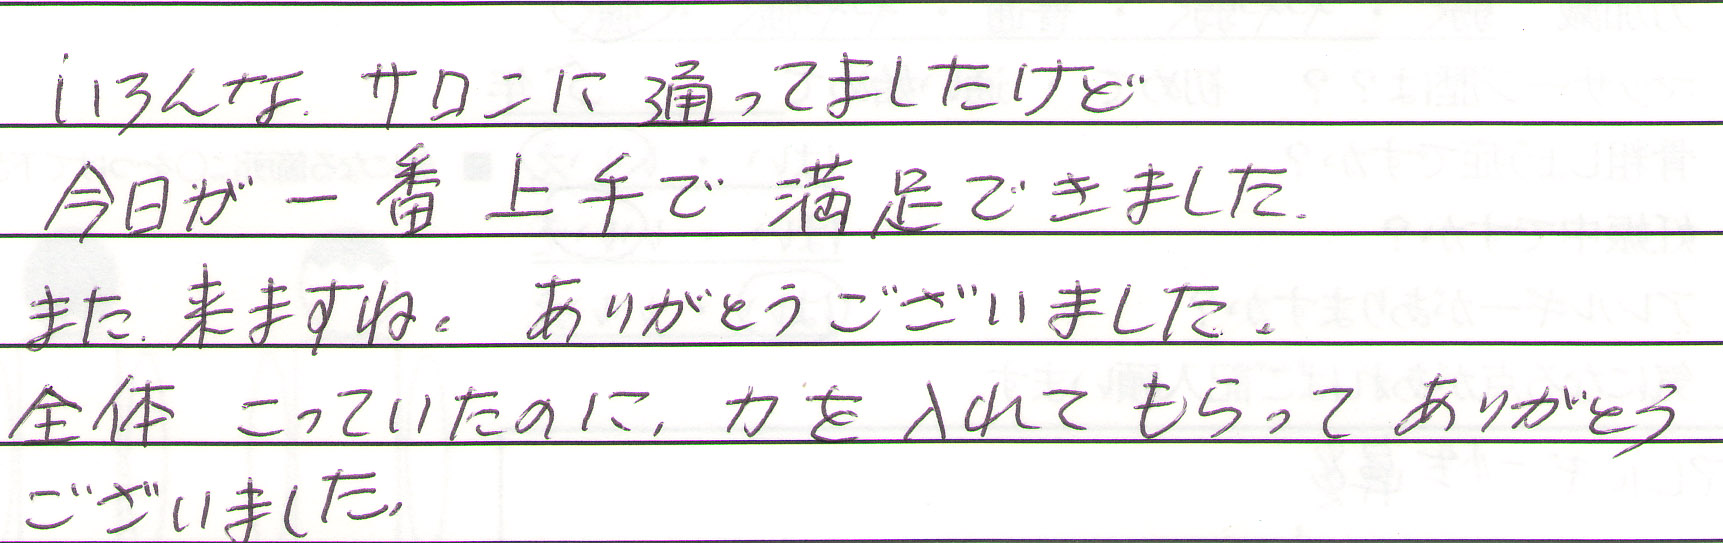 いろんな.サロンに通ってましたけど
今日が一番上手で満足できました.
また.来ますね。ありがとうございました。
全体こっていたのに、力を入れてもらってありがとう
ございました。